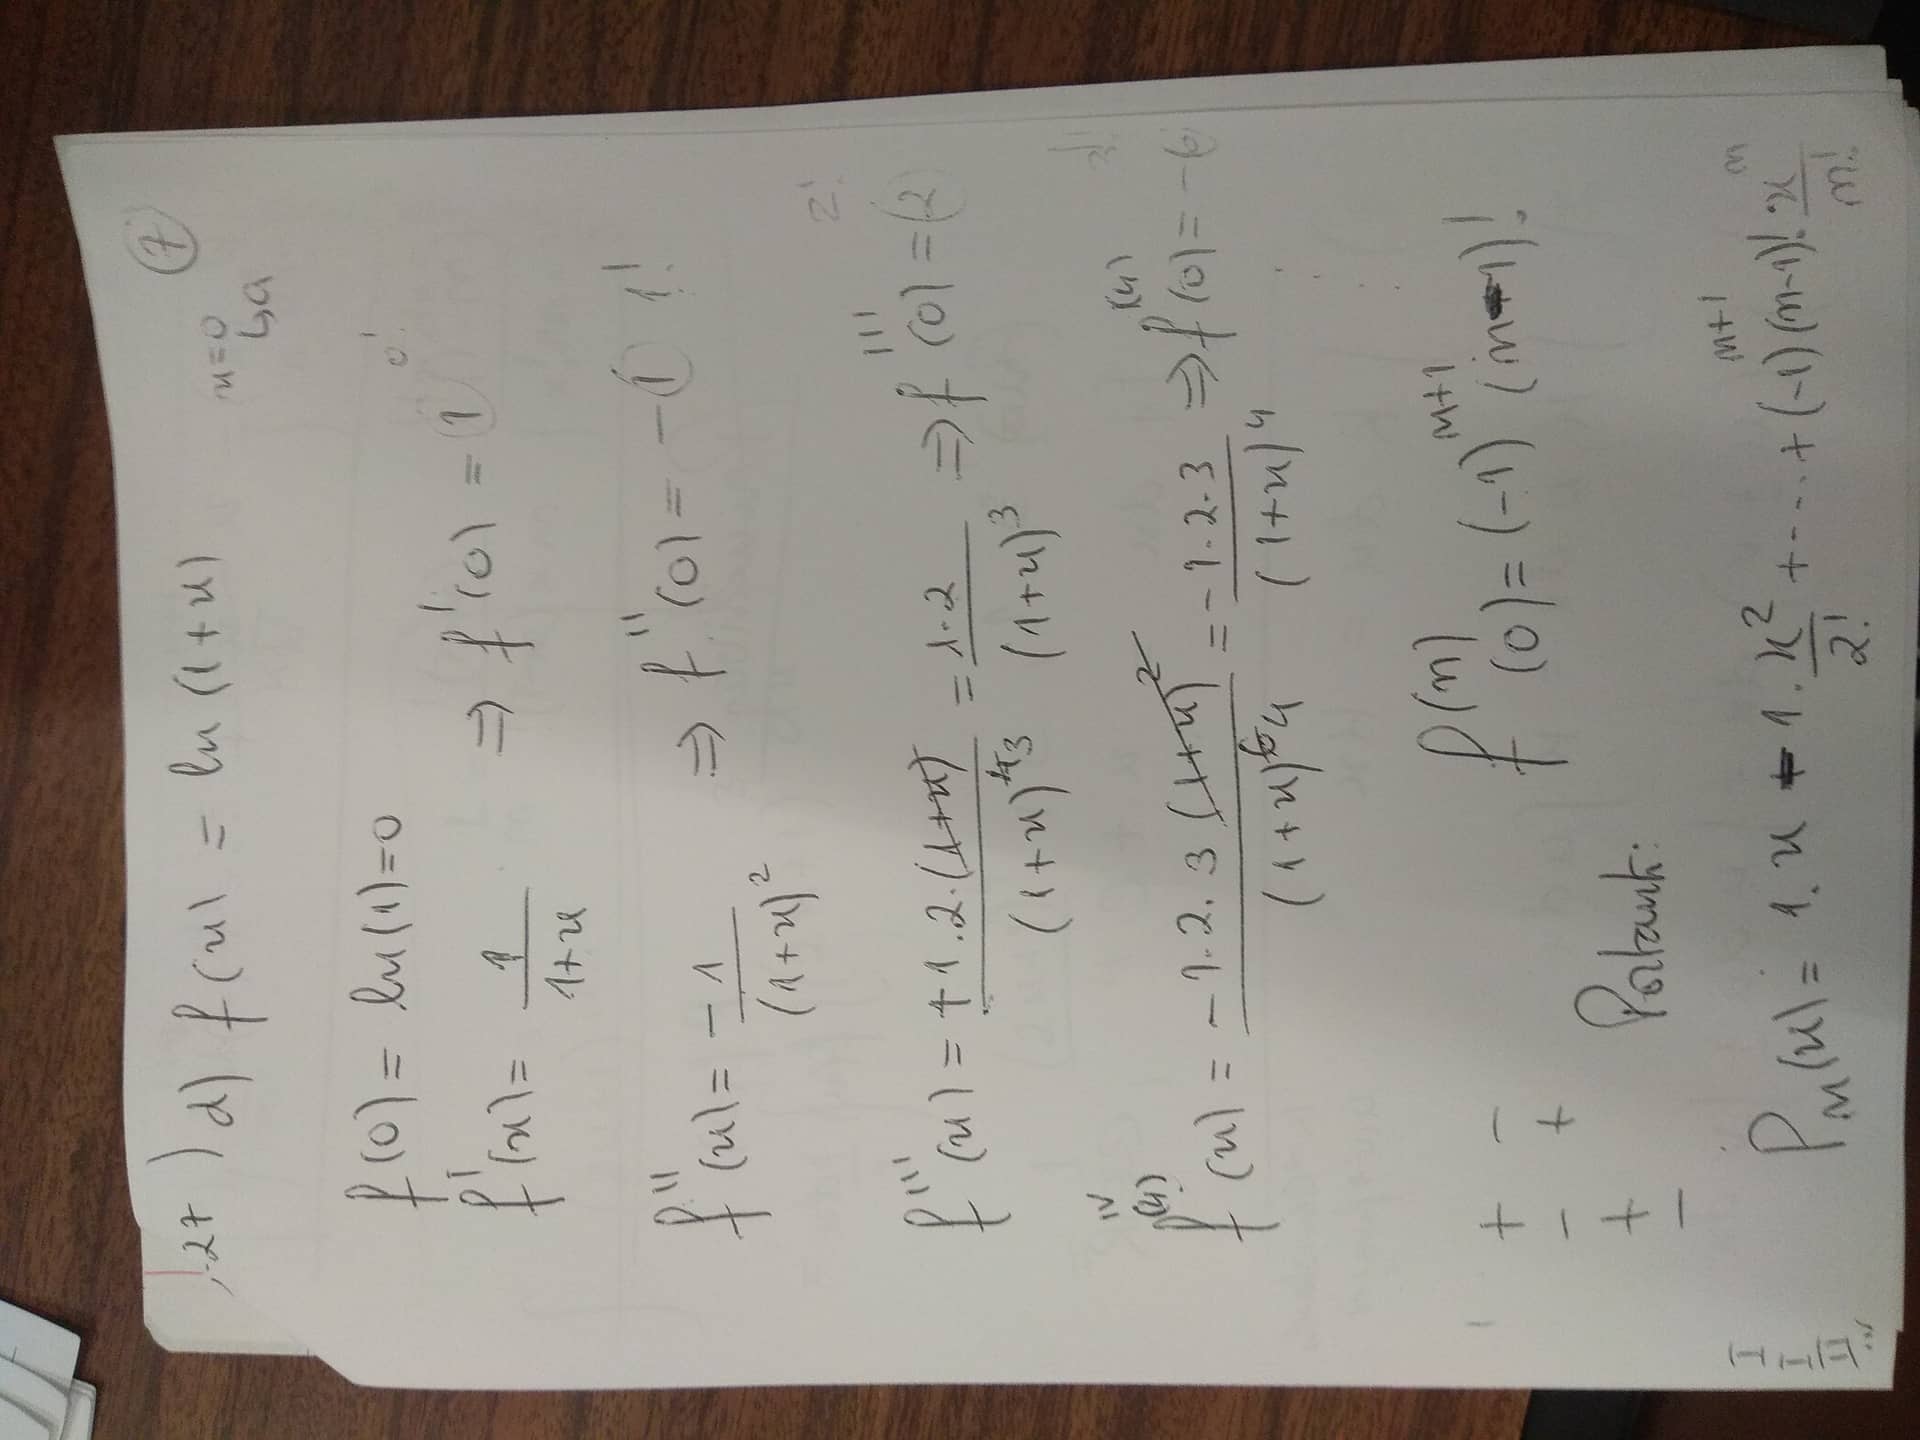 27) d) f(x) = ln(1+x)
7
x=0
↳a
f(0) = ln(1)=0
0!
f'(x) = 1/(1+x) ⇒ f'(0) = 1
f''(x) = -1/(1+x)^2 ⇒ f''(0) = -1 1!
2!
f'''(x) = +1.2.(1+x)/(1+x)^4 3 = 1.2/(1+x)^3 ⇒ f'''(0) = 2
3!
IV
f^(4)(x) = -1.2.3(1+x)^2/(1+x)^6 4 = -1.2.3/(1+x)^4 ⇒ f^(4)(0) = -6
f^(n)(0) = (-1)^(n+1) (n-1)!
+ -
- +
+
-
Portant:
Pn(x) = 1.x - 1.x^2/2! + ... + (-1)^(n+1) (n-1)! x^n/n!